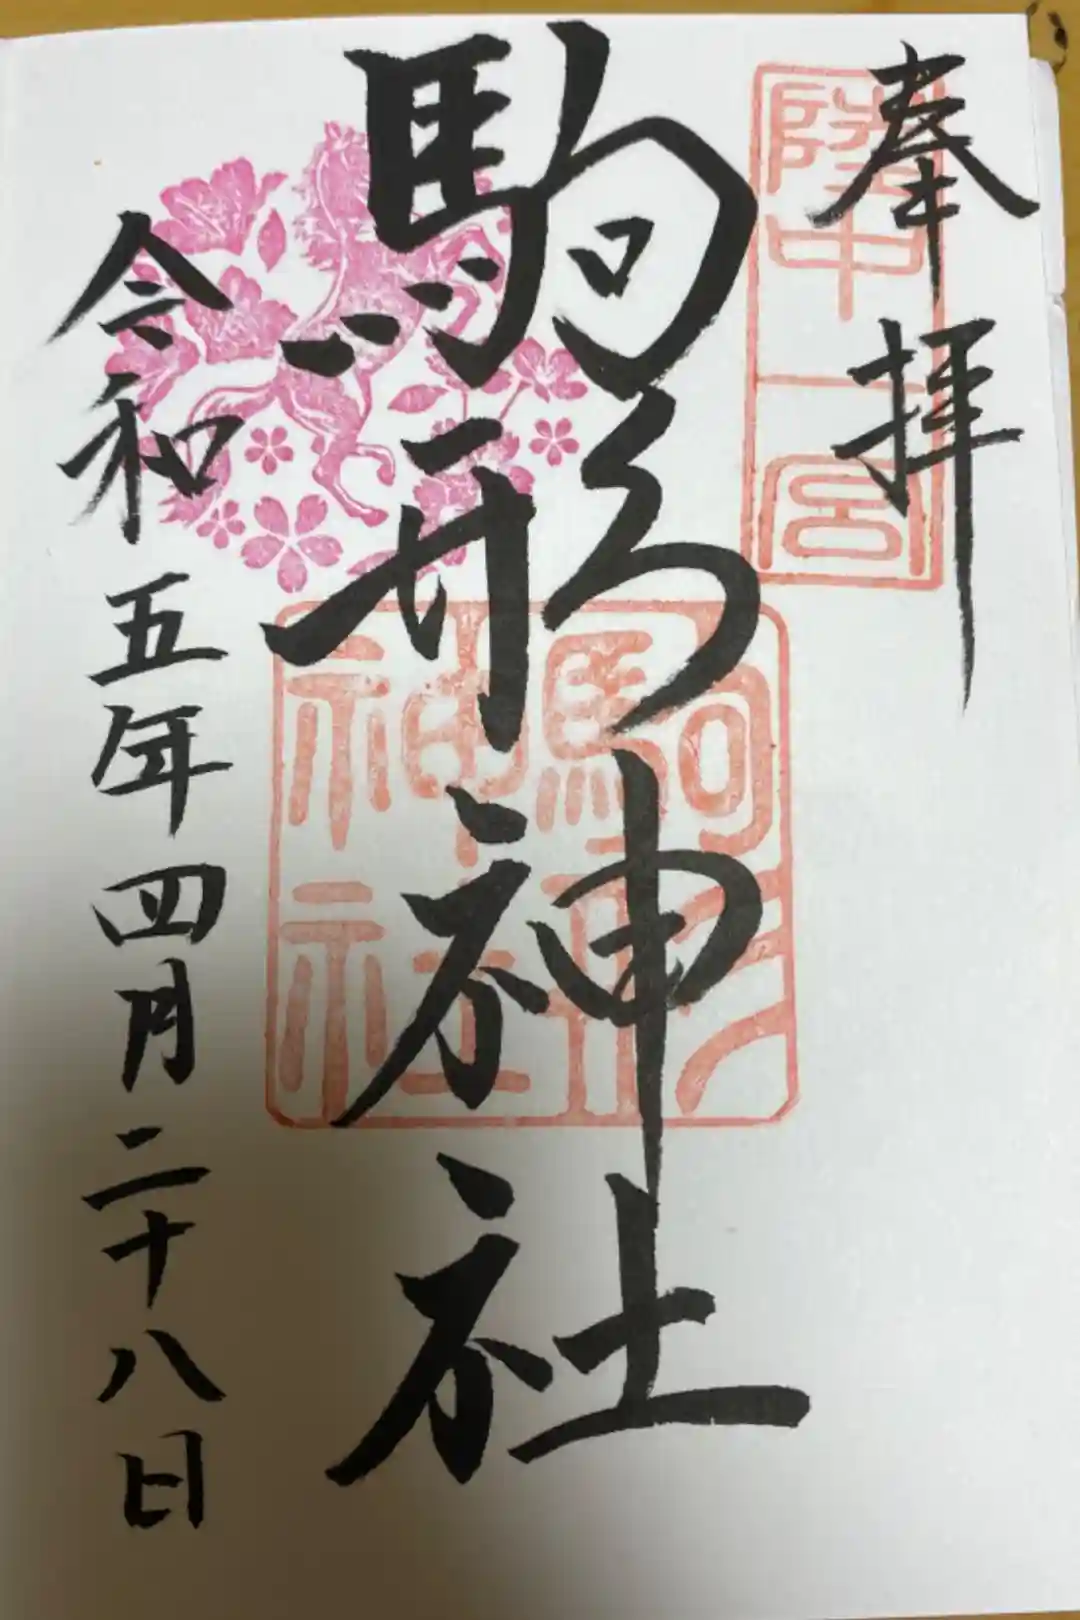 奉拝
陸中一宮
駒形神社
駒形
神社
令和五年四月二十八日